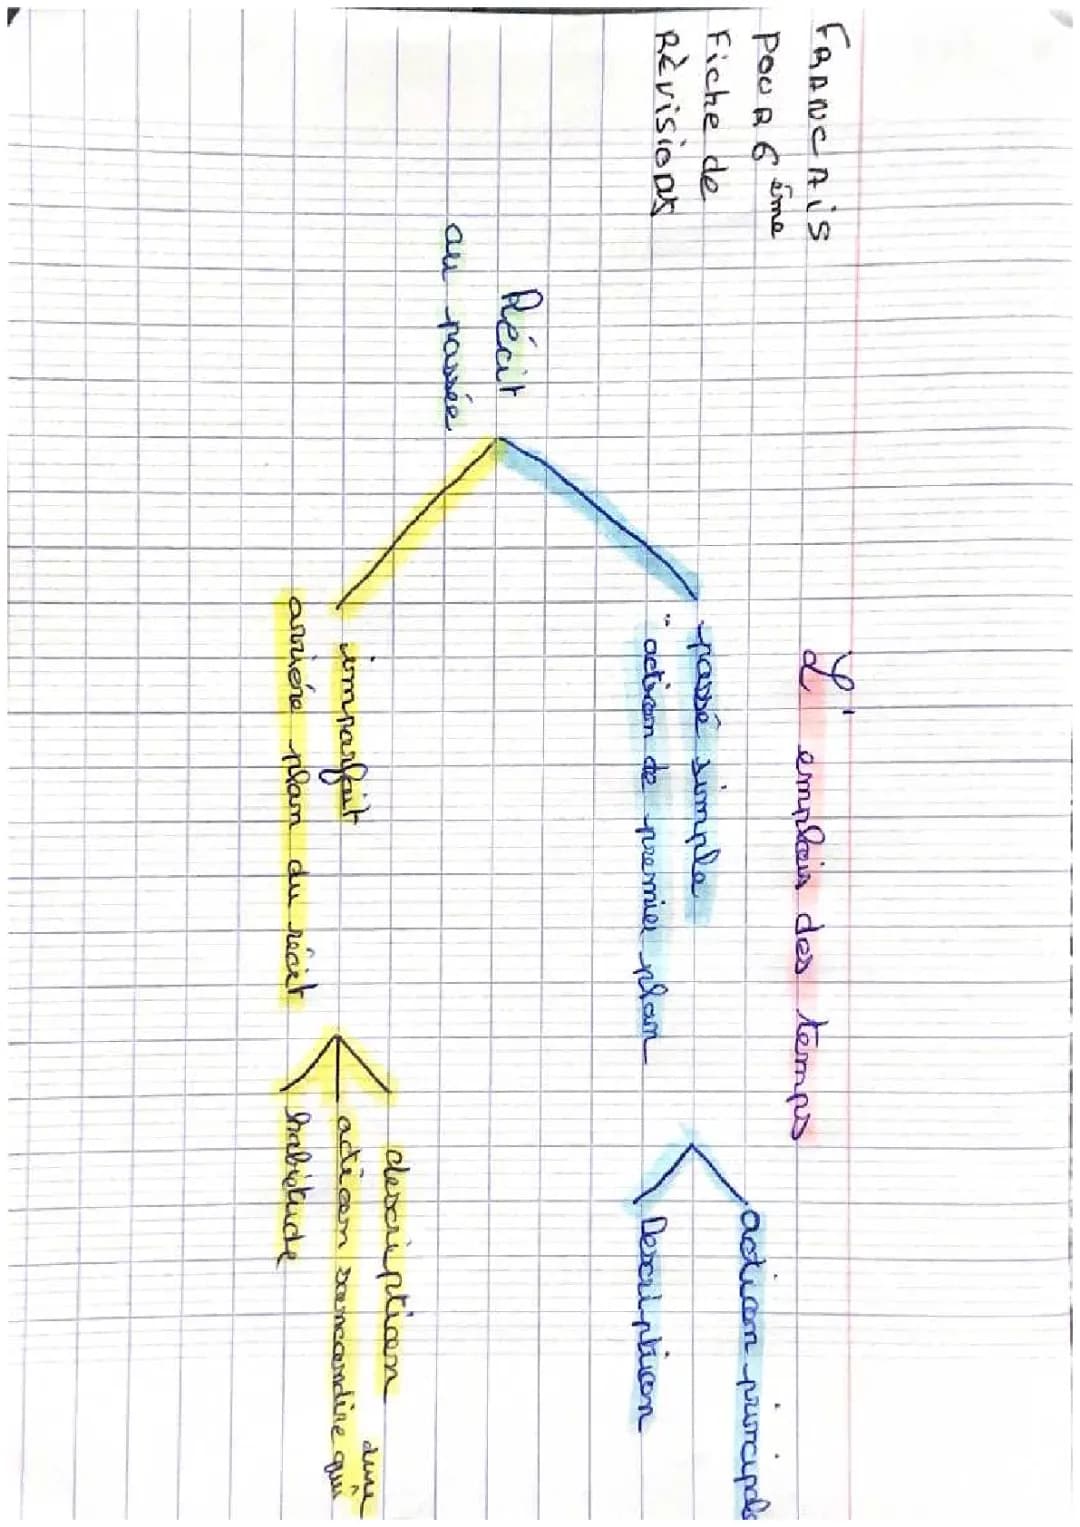 FRANCAIS
POUR 6ème
Fiche de
Rèvisions
L'emplois des temps
Récit
au passée
passé simple
" action de premier plan
action principale
Description
imparfait
arrière plan du récit
description
action sencondire qui dure
habitude